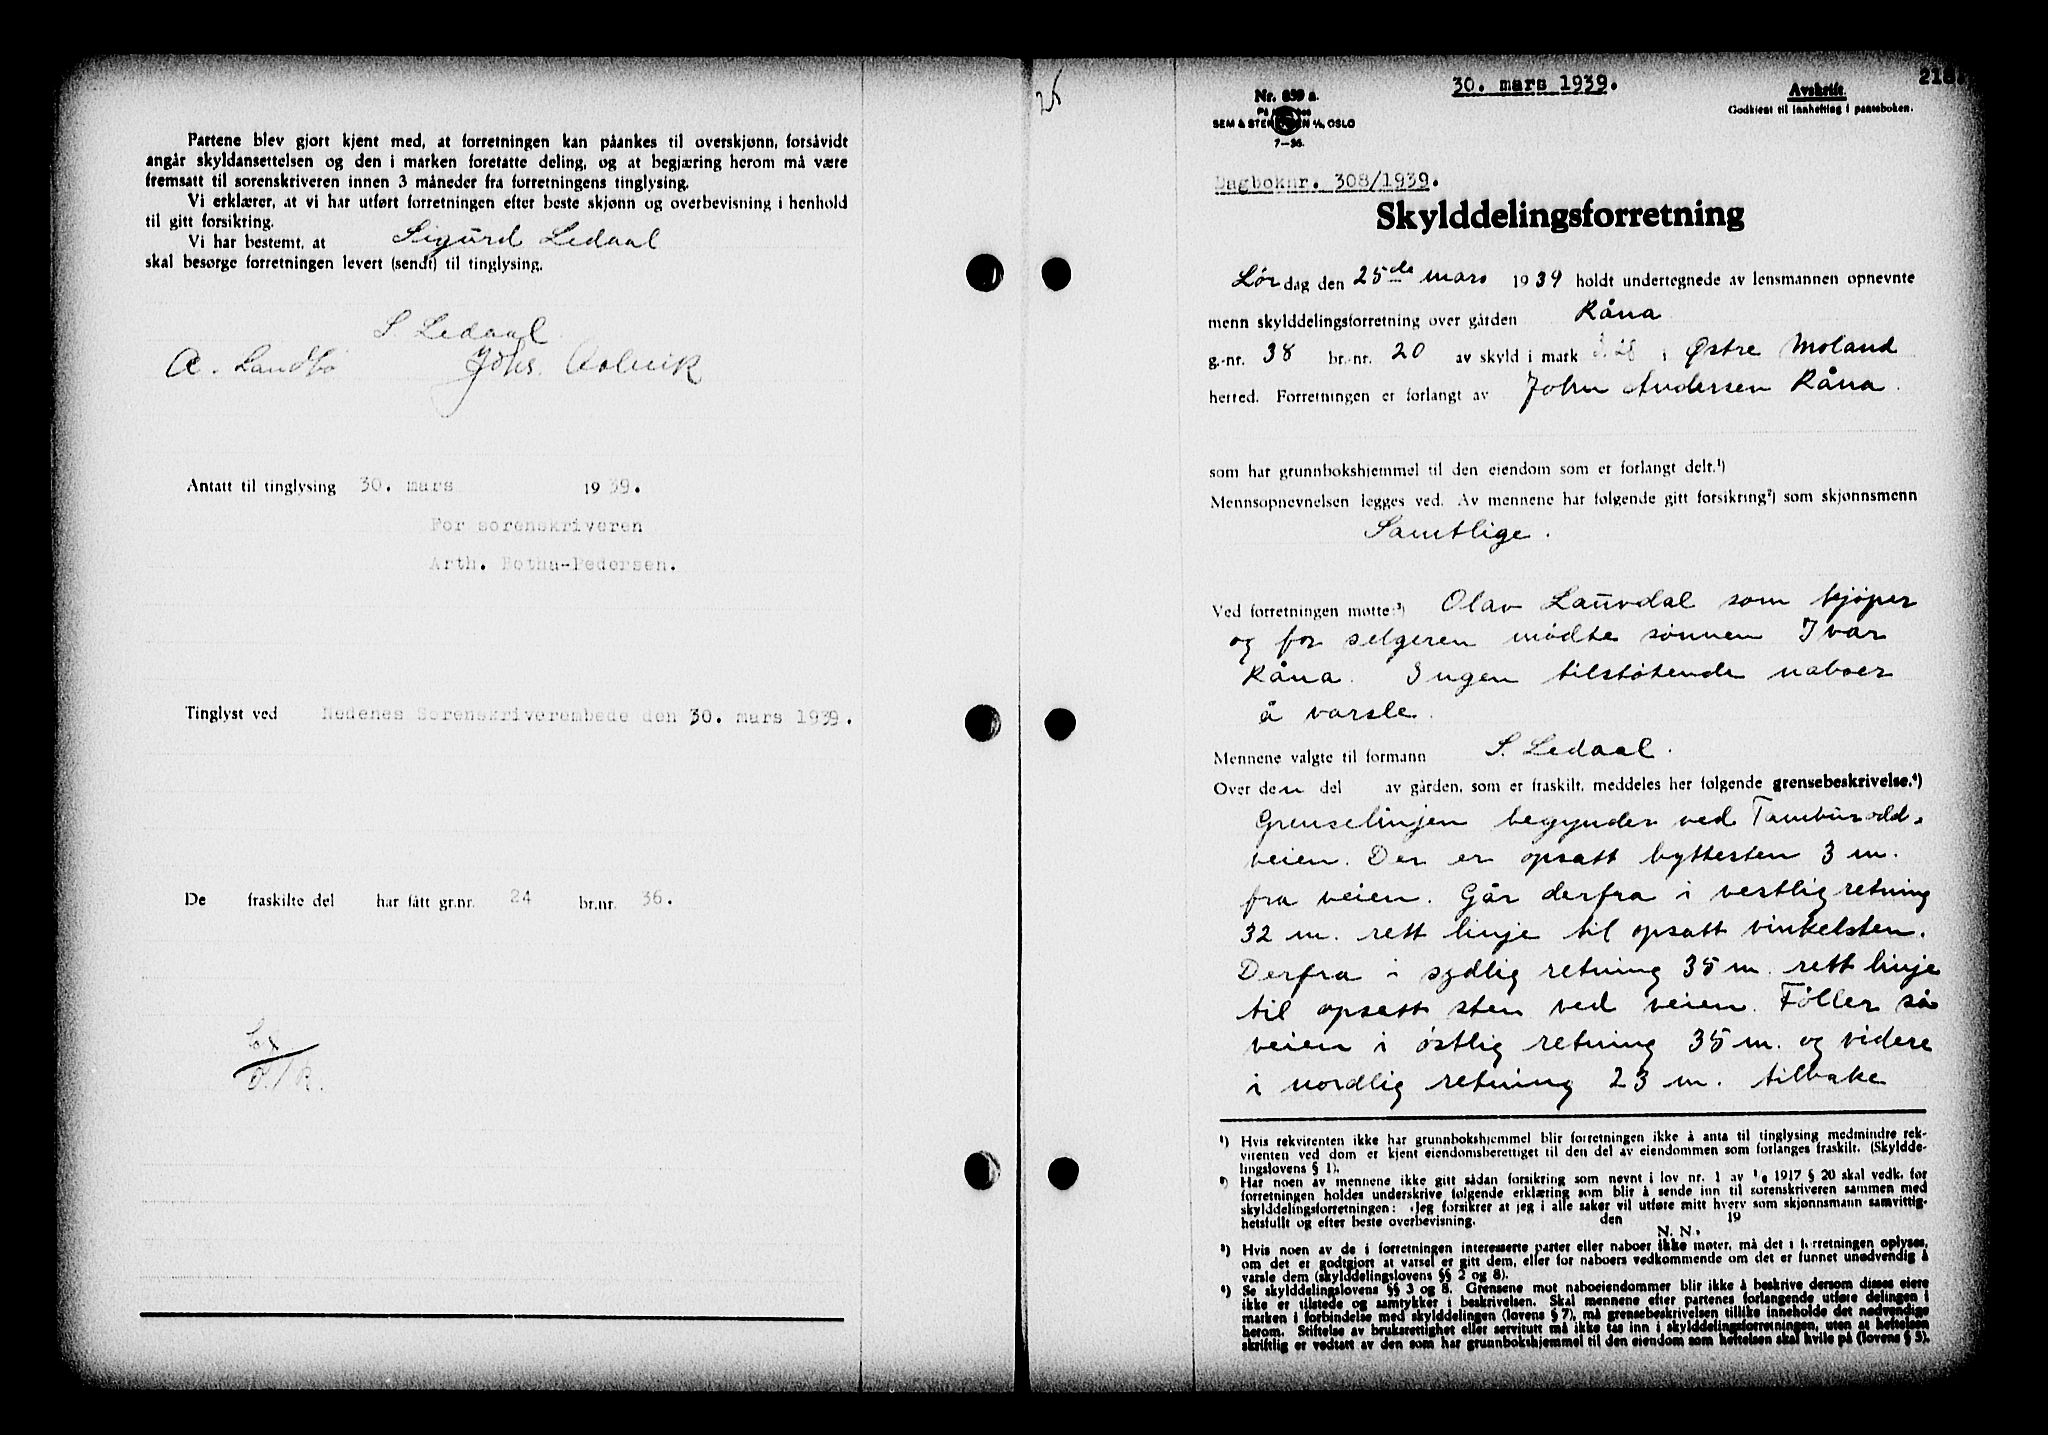 Partene blev gjort kjent med, at forretningen kan påankes til overskjønn, forsåvidt
angår skyldansettelsen og den i marken foretatte deling, og at begjæring herom må være
fremsatt til sorenskriveren innen 3 måneder fra forretningens tinglysing.
Vi erklærer, at vi har utført forretningen efter beste skjønn og overbevisning i henhold
til gitt forsikring.
Vi har bestemt, at Sigurd Ledaal
skal besørge forretningen levert (sendt) til tinglysing.
S. Ledaal
A. Landbø Johs.
Antatt til tinglysing 30. mars 1939.
For sorenskriveren
Arth. Pedersen.
Tinglyst ved Nedenes Sorenskriverembede den 30. mars 1939.
De fraskilte del har fått gr.nr. 24 br.nr. 36.
30. mars 1939.
Nr. 839 a.
SEM & STENERSEN A/S, OSLO
7-36.
Avskrift
Godkjent til innhefting i panteboken.
Dagboknr. 308/1939.
Skylddelingsforretning
Lørdag den 25de mars 1939 holdt undertegnede av lensmannen opnevnte
menn skylddelingsforretning over gården Råna
g.-nr. 38 br.-nr. 20 av skyld i mark i Østre Moland
herred. Forretningen er forlangt av John Andersen Råna.
som har grunnbokshjemmel til den eiendom som er forlangt delt.¹)
Mennsopnevnelsen legges ved. Av mennene har følgende gitt forsikring²) som skjønnsmenn
Samtlige.
Ved forretningen møtte:³) Olav Lauvdal som kjøper
og for selgeren mødte sønnen Ivar
Råna. Ingen tilstøtende naboer
å varsle.
Mennene valgte til formann S. Ledaal.
Over den del av gården, som er fraskilt, meddeles her følgende grensebeskrivelse.⁴)
Grenselinjen begynder ved Tamburodd-
veien. Der er opsatt byttesten 3 m.
fra veien. Går derfra i vestlig retning
32 m. rett linje til opsatt vinkelsten.
Derfra i sydlig retning 35 m. rett linje
til opsatt sten ved veien. Føller så
veien i østlig retning 35 m. og videre
i nordlig retning 23 m. tilbake
¹) Hvis rekvirenten ikke har grunnbokshjemmel blir forretningen ikke å anta til tinglysing medmindre rek-
virenten ved dom er kjent eiendomsberettiget til den del av eiendommen som forlanges fraskilt. (Skyldde-
lingslovens § 1).
²) Har noen av mennene ikke gitt sådan forsikring som nevnt i lov nr. 1 av 1/6 1917 § 20 skal vedk. før
forretningen holdes underskrive følgende erklæring som blir å sende inn til sorenskriveren sammen med
skylddelingsforretningen: «Jeg forsikrer at jeg i alle saker vil utføre mitt hverv som skjønnsmann samvittig-
hetsfullt og efter beste overbevisning. den 19
N. N.
³) Hvis noen av de i forretningen interesserte parter eller naboer ikke møter, må det i forretningen oplyses,
om det er godtgjort at varsel er gitt dem, eller for naboers vedkommende om det er funnet unødvendig å
varsle dem (skylddelingslovens §§ 2 og 8).
⁴) Se skylddelingslovens §§ 3 og 8. Grensene mot naboeiendommer blir ikke å beskrive dersom disses eiere
ikke er tilstede og samtykker i beskrivelsen. Skal mennene efter partenes forlangende utføre delingen i
marken i forbindelse med skylddelingen (lovens § 7), må grensebeskrivelsen tillike inneholde det nødvendige
herom. Stiftelse av bruksrettighet eller servitutt må ikke tas inn i skylddelingsforretningen, uten at heftelsen
skriftlig er vedtatt av den som har grunnbokshjemmel til den eiendom som heftelsen skal hvile på (lovens § 5).